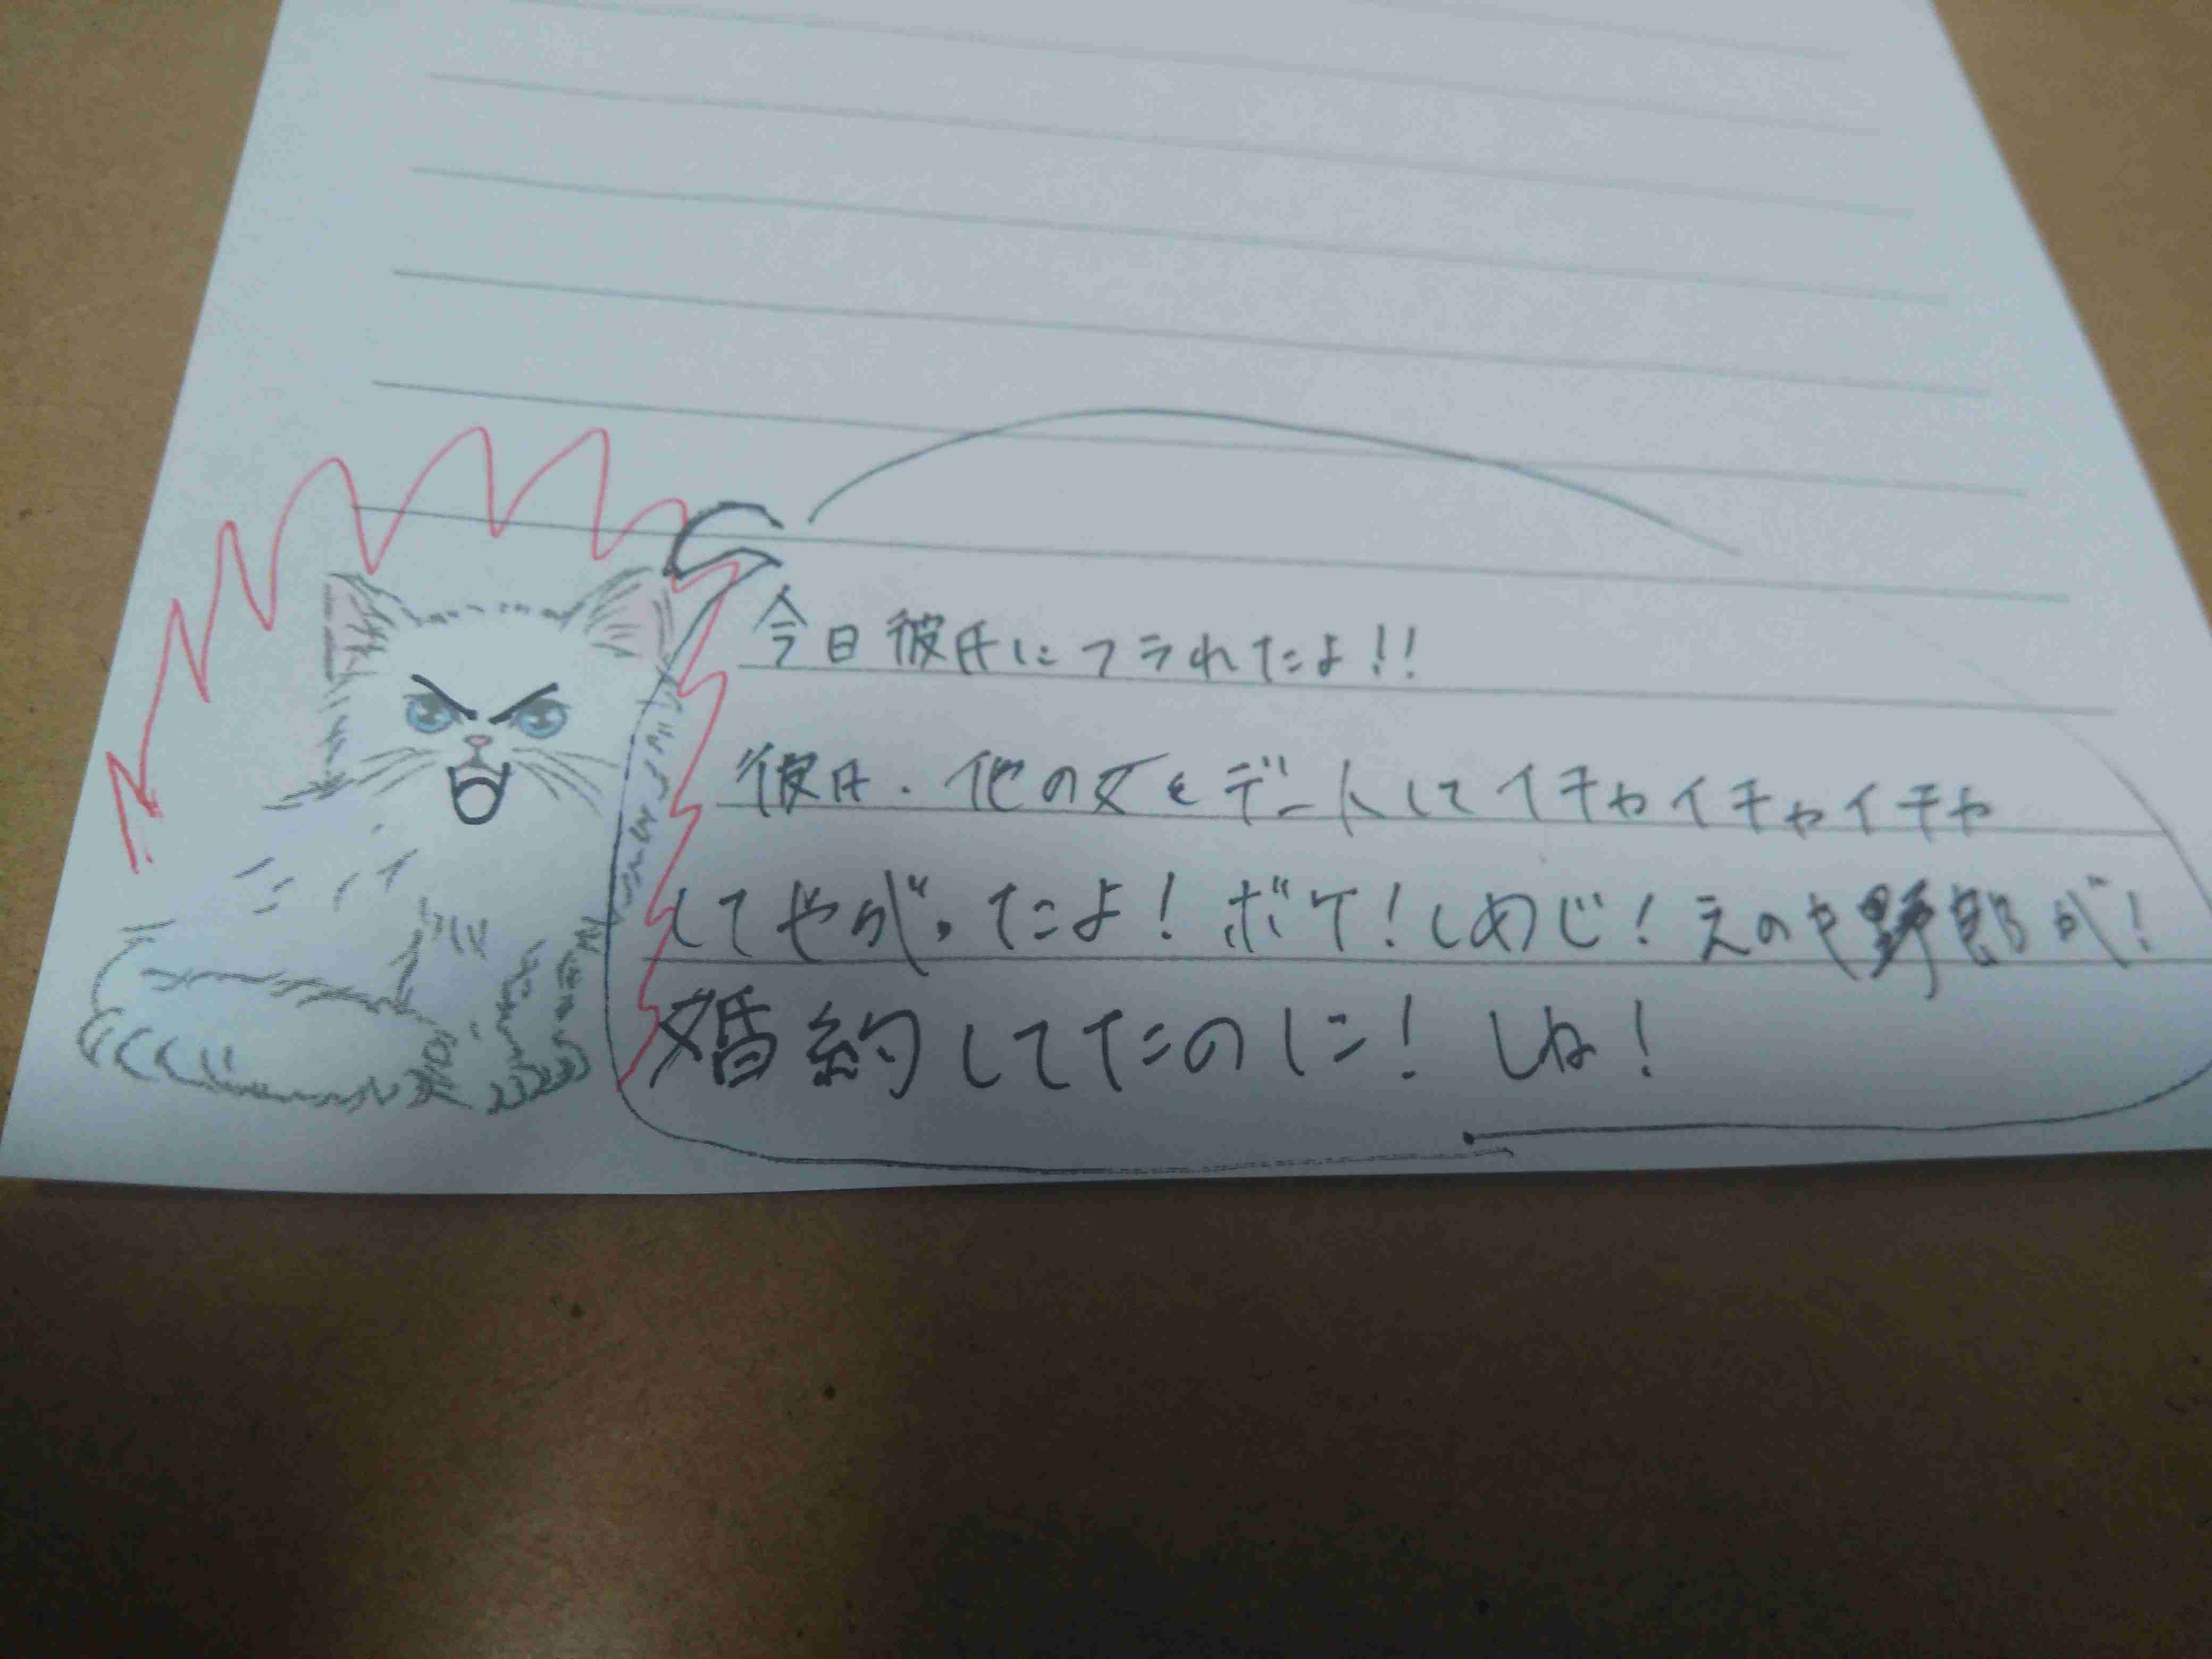 今日彼氏にフラれたよ!!
彼氏、他の女とデートしてイチャイチャイチャ
してやがったよ!ボケ!しめじ!えのき野郎が!
婚約してたのに!しね!